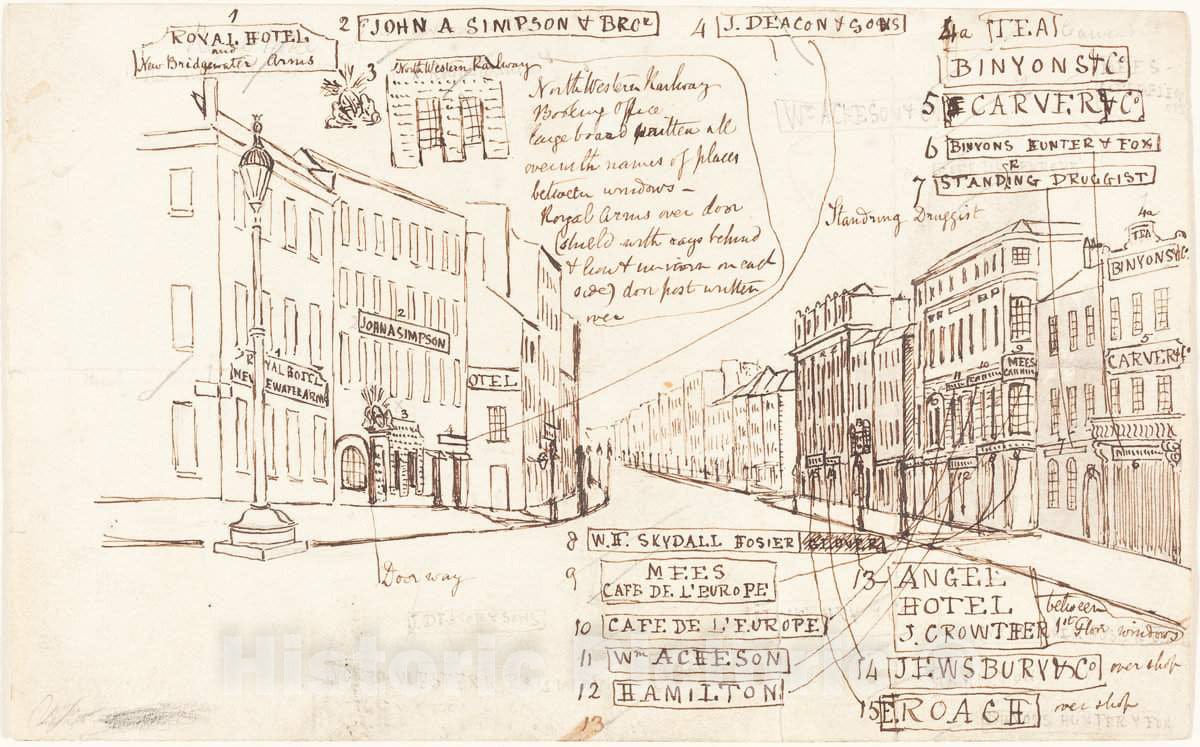 1
ROYAL HOTEL
and
New Bridgewater Arms
2 JOHN A SIMPSON & BROR
3
North Western Railway
4 J. DEACON & SONS
4a TEA
BINYONS & Co
5 CARVER & Co
6 BINYONS HUNTER & FOX
7 STANDRING DRUGGIST
North Western Railway
Booking Office
large board written all
over with names of places
between windows –
Royal Arms over door
(shield with rays behind
& lion & unicorn on each
side) door post written
over
Standring Druggist
Wm ACHESON & C
2
JOHN A SIMPSON
1
YAL HOTEL
EWATER ARMS
NEW
3
4
OTEL
4a
TEA
BINYONS & Co.
5
CARVER & Co
6
9
MEES
10
11
12
15 14
Door way
8 W. H. SKYDALL HOSIER
9 MEES
CAFE DE L'EUROPE
10 CAFE DE L'EUROPE
11 Wm ACHESON
12 HAMILTON
13 ANGEL
HOTEL
J. CROWTHER
between
1st Floor windows
14 JEWSBURY & Co over shop
15 E. ROACH over shop
J. DEACON & SONS
13
Historic